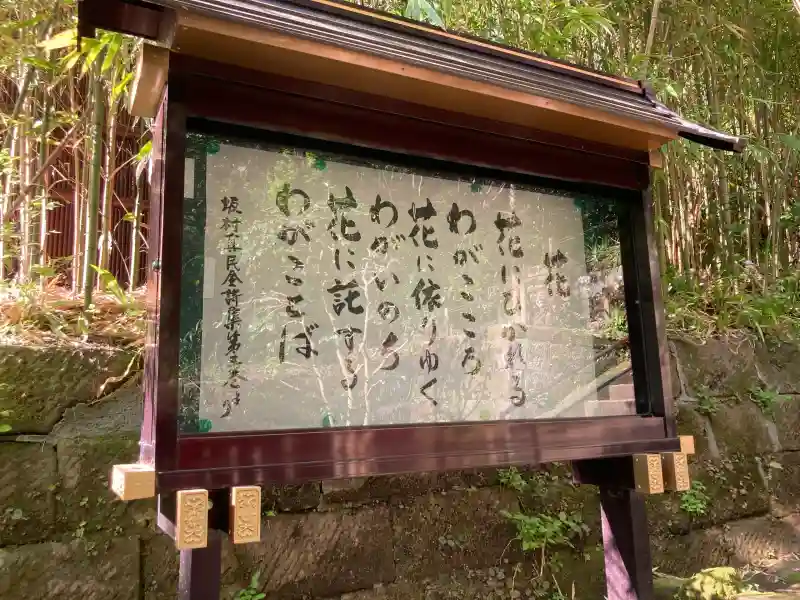 花
花にひかれる
わがこころ
花に依りゆく
わがいのち
花に託する
わがことば
坂村真民全詩集第三巻より